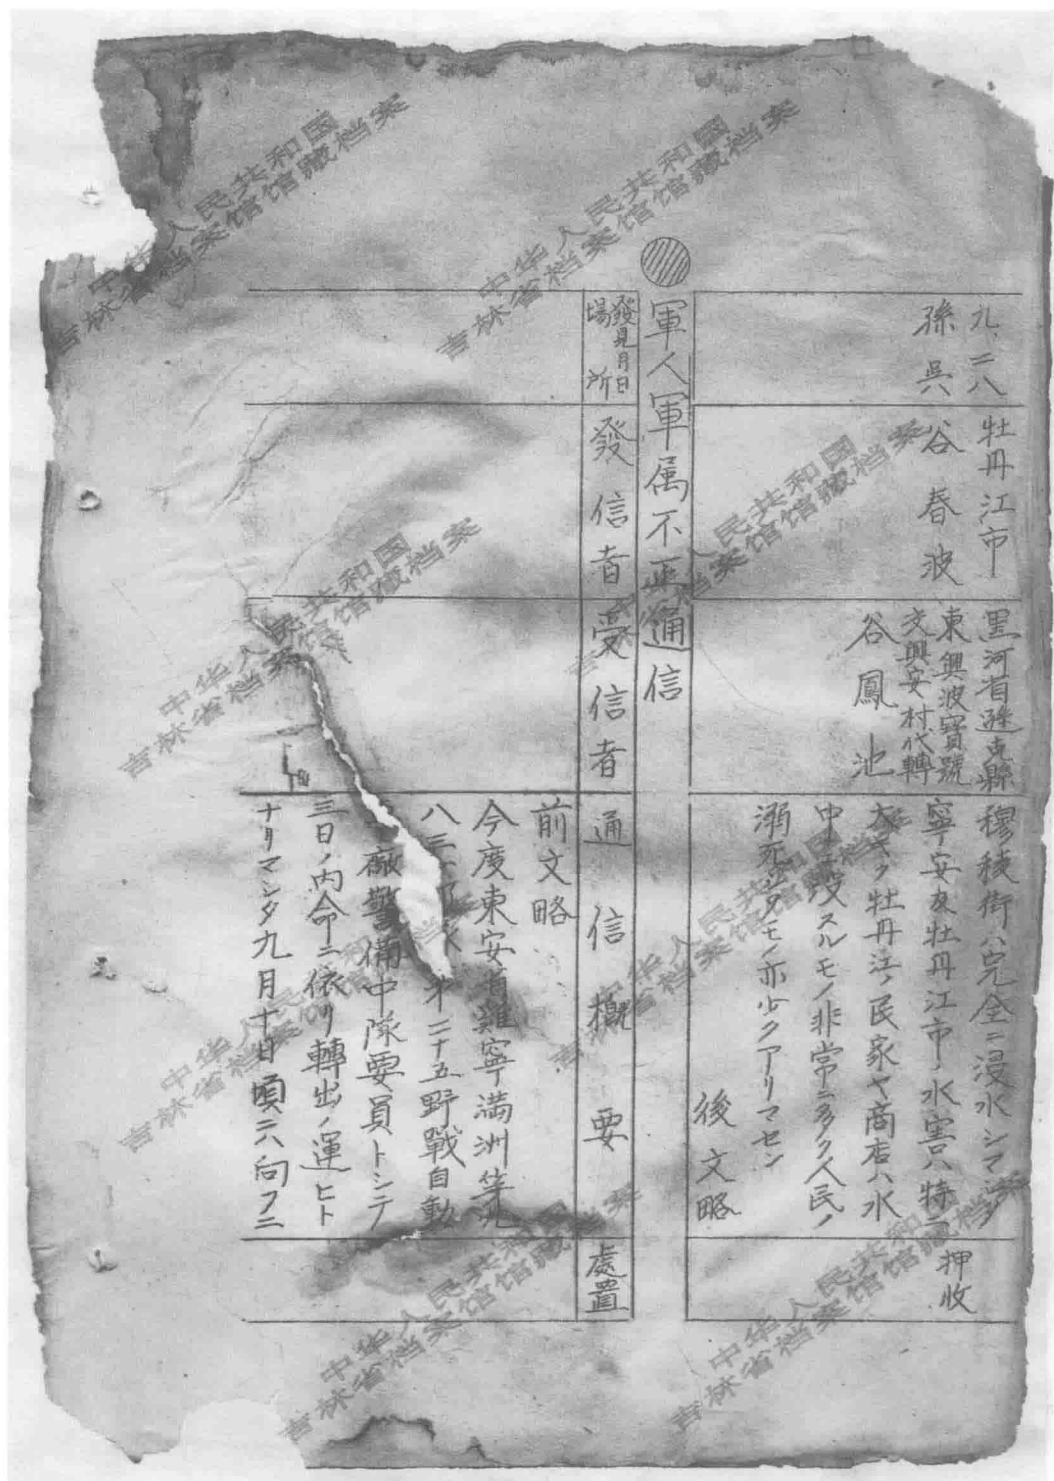 九、二八
孫呉
牡丹江市
谷春波
黒河省遜克縣
東興波寶號
交興安村代轉
谷鳳池
穆稜街ハ完全ニ浸水シマシタ
寧安及牡丹江市ノ水害ハ特ニ
大キク牡丹江ノ民家ヤ商店ハ水
中ニ没スルモノ非常ニ多ク人民ノ
溺死シタモノ亦少クアリマセン
後文略
押収
軍人軍属不正通信
發見月日
場所
發信者
受信者
通信概要
處置
前文略
今度東安省雞寧満洲第九
八三 部隊第二十五野戰自動
廠警備中隊要員トシテ
三日ノ内命ニ依リ轉出ノ運ビト
ナリマシタ九月十日頃六向フニ
中华人民共和国
吉林省档案馆馆藏档案